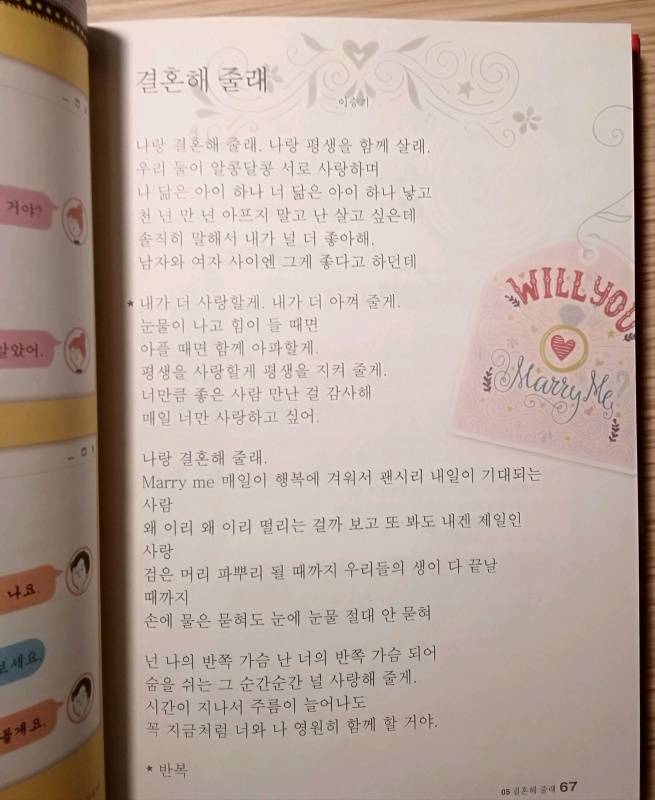 거야?
알았어.
나요.
보세요.
볼게요.
결혼해 줄래
이승기
나랑 결혼해 줄래. 나랑 평생을 함께 살래.
우리 둘이 알콩달콩 서로 사랑하며
나 닮은 아이 하나 너 닮은 아이 하나 낳고
천 년 만 년 아프지 말고 난 살고 싶은데
솔직히 말해서 내가 널 더 좋아해.
남자와 여자 사이엔 그게 좋다고 하던데
★ 내가 더 사랑할게. 내가 더 아껴 줄게.
눈물이 나고 힘이 들 때면
아플 때면 함께 아파할게.
평생을 사랑할게 평생을 지켜 줄게.
너만큼 좋은 사람 만난 걸 감사해
매일 너만 사랑하고 싶어.
나랑 결혼해 줄래.
Marry me 매일이 행복에 겨워서 괜시리 내일이 기대되는
사람
왜 이리 왜 이리 떨리는 걸까 보고 또 봐도 내겐 제일인
사랑
검은 머리 파뿌리 될 때까지 우리들의 생이 다 끝날
때까지
손에 물은 묻혀도 눈에 눈물 절대 안 묻혀
넌 나의 반쪽 가슴 난 너의 반쪽 가슴 되어
숨을 쉬는 그 순간순간 널 사랑해 줄게.
시간이 지나서 주름이 늘어나도
꼭 지금처럼 너와 나 영원히 함께 할 거야.
★ 반복
WILL YOU
Marry Me?
05 결혼해 줄래 67